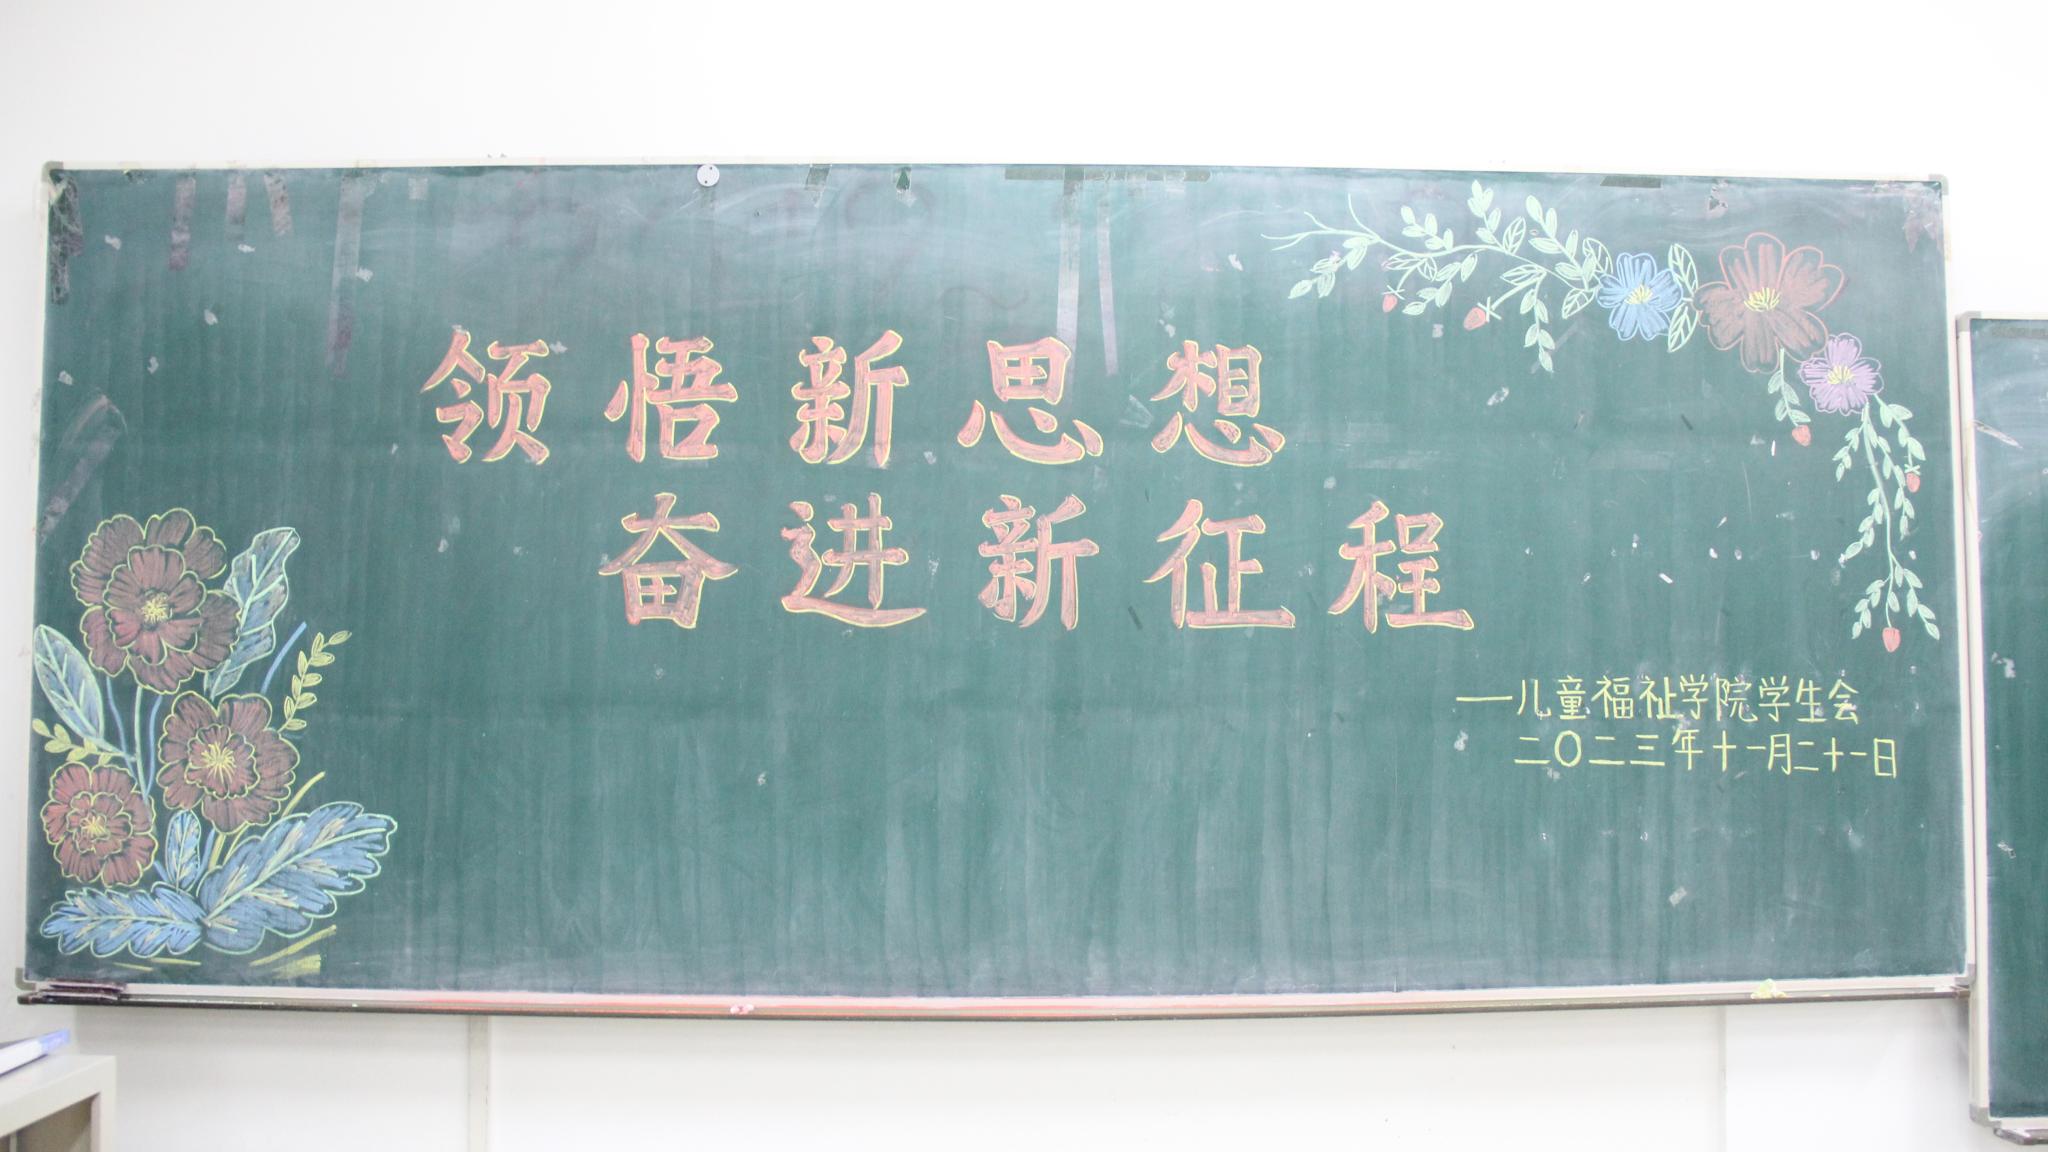 领悟新思想
奋进新征程
—儿童福祉学院学生会
二〇二三年十一月二十一日